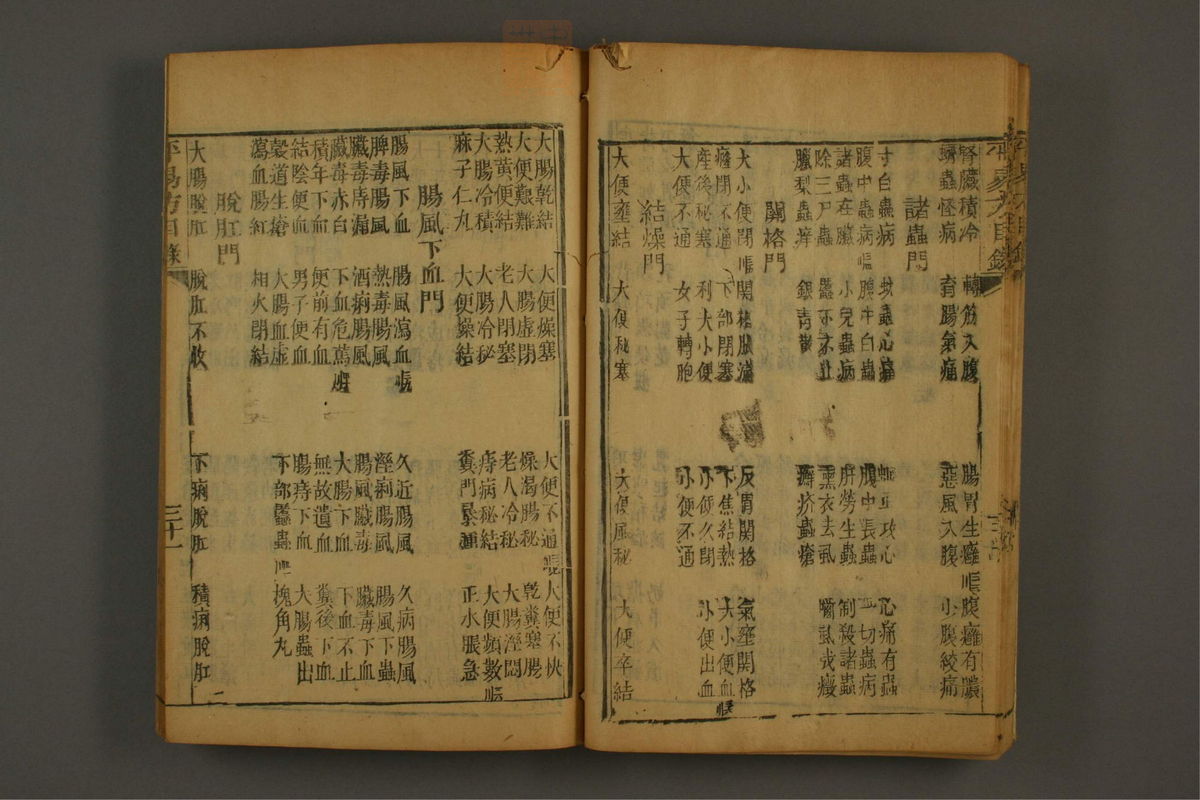 腎臟積冷 轉筋入腹 腸胃生癰 腹癰有膿
蟒蟲怪病 育腸氣痛 惡風入腹 小腹絞痛
諸蟲門
寸白蟲病 心痛有蟲
腹中蟲病 腹中白蟲 腹中長蟲 一切蟲病
諸蟲在臟 小兒蟲病 肝勞生蟲 制殺諸蟲
除三尸蟲 熏衣去虱
臘梨蟲癢 銀青散 癬疥蟲瘡
關格門
大小便閉 關格脹滿 反胃關格 氣壅關格
癃閉不通 下部閉塞 下焦結熱 大小便血
產後秘塞 利大小便 小便久閉 小便出血
大便不通 女子轉胞 小便不通
結燥門
大便壅結 大便秘塞 大便風秘 大便卒結
大腸乾結 大便燥塞 大便不通 大便不快
大便艱難 大腸虛閉 燥渴腸秘 乾糞塞腸
熱黃便結 老人閉塞 老人冷秘 大腸溼悶
大腸冷積 大腸冷秘 痔病秘結 大便頻數
麻子仁丸 大便燥結 糞門暴通 正水脹急
腸風下血門
腸風下血 腸風瀉血 久近腸風 久病腸風
脾毒腸風 熱毒腸風 溼痢腸風 腸風下蟲
臟毒痔漏 酒病腸風 腸風臟毒 臟毒下血
臟毒赤白 下血危篤 大腸下血 下血不止
積年下血 便前有血 無故遺血 糞後下血
結陰便血 男子便血 腸痔下血 大腸蟲出
穀道生瘡 大腸血虛 下部䘌蟲 槐角丸
瀉血腸紅 相火閉結
脫肛門
大腸脫肛 脫肛不收 下痢脫肛 積痢脫肛
三十一